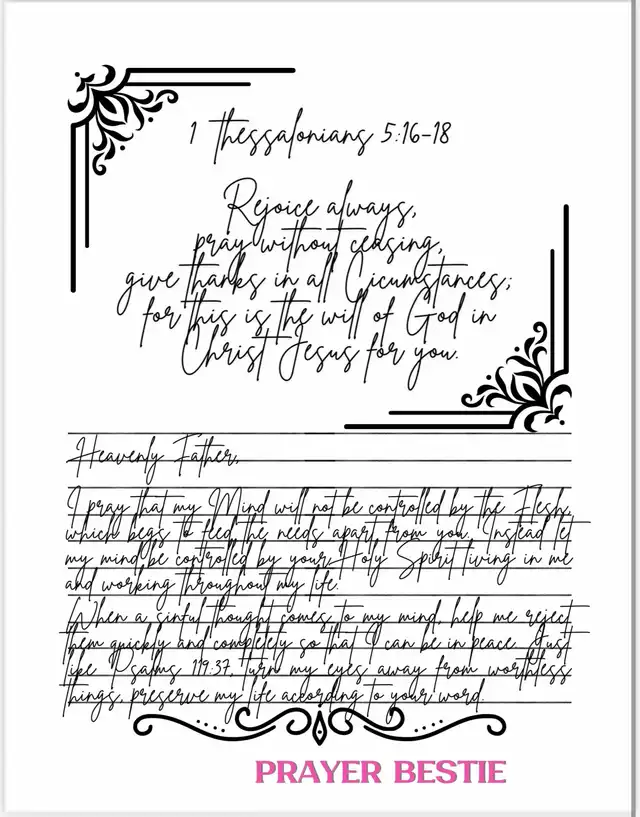 1 Thessalonians 5:16-18
Rejoice always,
pray without ceasing,
give thanks in all Cicumstances;
for this is the will of God in
Christ Jesus for you.
Heavenly Father,
I pray that my Mind will not be controlled by the Flesh,
which begs to feed the needs apart from you. Instead let
my mind be controlled by your Holy Spirit living in me
and working throughout my life.
When a sinful thought comes to my mind, help me reject
them quickly and completely so that I can be in peace. Just
like Psalms 119:37, turn my eyes away from worthless
things, preserve my life according to your word.
PRAYER BESTIE